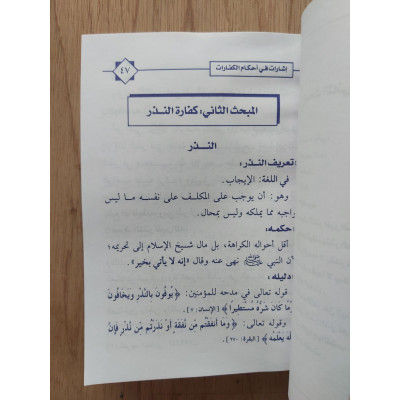 إشارات في أحكام الكفارات
٤٧
المبحث الثاني: كفارة النذر
النذر
تعريف النذر:
في اللغة: الإيجاب.
وهو: أن يوجب على المكلف على نفسه ما ليس
واجبه مما يملكه وليس بمحال.
حكمه:
أقل أحواله الكراهة، بل مال شيخ الإسلام إلى تحريمه؛
لأن النبي ﷺ نهى عنه وقال «إنه لا يأتي بخير».
دليله:
قوله تعالى في مدحه للمؤمنين: ﴿يُوفُونَ بِالنَّذْرِ وَيَخَافُونَ
يَوْمًا كَانَ شَرُّهُ مُسْتَطِيرًا﴾ [الإنسان: ٧].
وقوله تعالى: ﴿وَمَا أَنفَقْتُم مِّن نَّفَقَةٍ أَوْ نَذَرْتُم مِّن نَّذْرٍ فَإِنَّ
اللَّهَ يَعْلَمُهُ﴾ [البقرة: ٢٧٠].